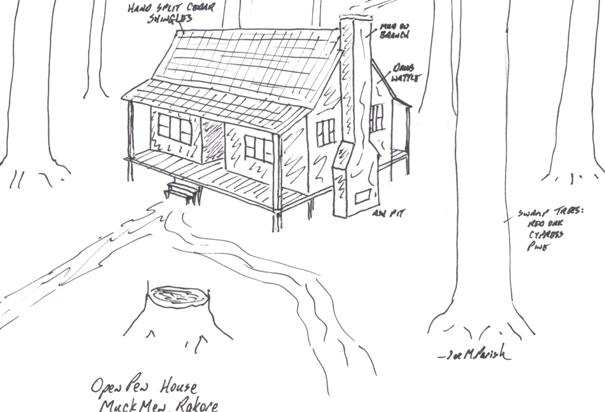 HAND SPLIT CEDAR
SHINGLES
MUD ON
BRANCH
DAUB
WATTLE
ASH PIT
SWAMP TREES:
RED OAK
CYPRESS
PINE
Joe M Parish
Open Pen House
MuckMen